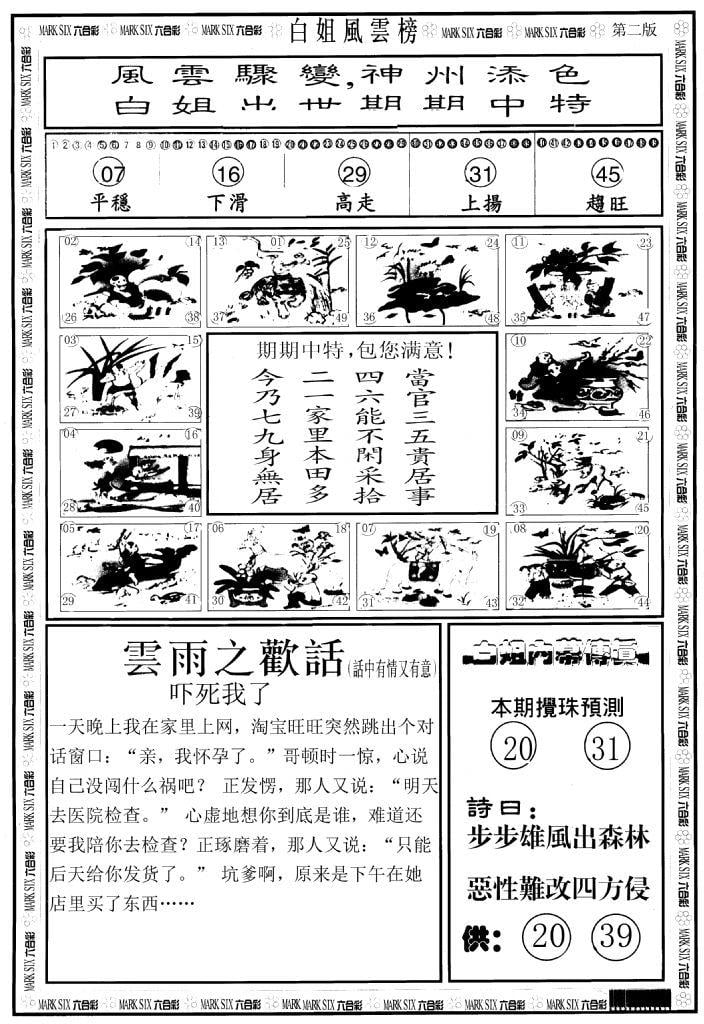 MARK SIX 六合彩 MARK SIX 六合彩 白姐風雲榜 MARK SIX 六合彩 MARK SIX 六合彩 第二版
風雲驟變,神州添色
白姐出世期期中特
07 16 29 31 45
平穩 下滑 高走 上揚 趨旺
02 14 13 01 25 12 24 11 23
26 38 37 49 36 48 35 47
03 15
27 39
10 22
34 46
04 16
28 40
09 21
33 45
期期中特,包您满意!
當官三五貴居事
四六能不閑采拾
二一家里本田多
今乃七九身無居
05 17 06 18 07 19 08 20
29 41 30 42 31 43 32 44
雲雨之歡話(話中有情又有意)
吓死我了
一天晚上我在家里上网，淘宝旺旺突然跳出个对
话窗口：“亲，我怀孕了。”哥顿时一惊，心说
自己没闯什么祸吧？ 正发愣，那人又说：“明天
去医院检查。” 心虚地想你到底是谁，难道还
要我陪你去检查？正琢磨着，那人又说：“只能
后天给你发货了。” 坑爹啊，原来是下午在她
店里买了东西……
白姐内幕傳真
本期攪珠預測
20 31
詩曰：
步步雄風出森林
惡性難改四方侵
供： 20 39
MARK SIX 六合彩 MARK SIX 六合彩 MARK SIX 六合彩 MARK SIX 六合彩 MARK SIX 六合彩 MARK SIX 六合彩 MARK SIX 六合彩